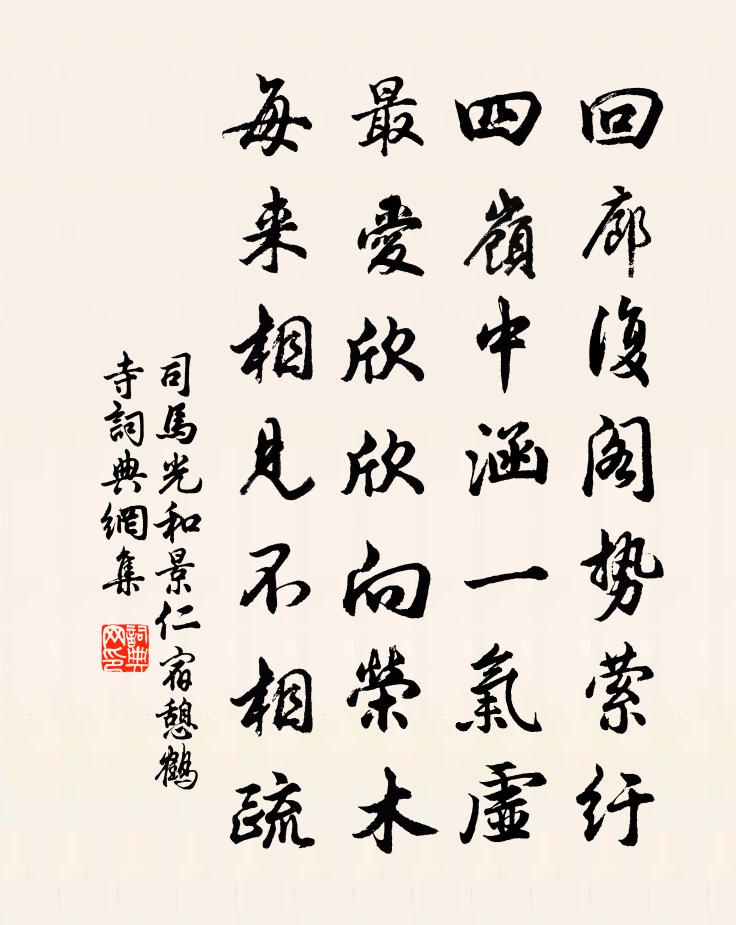 回廊復阁势萦纡
四嶺中涵一氣虛
最愛欣欣向榮木
每来相見不相疏
司馬光和景仁宿憩鶴
寺詞典網集
詞典
网印